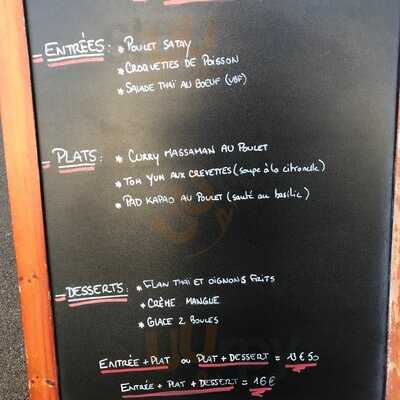 ENTRÉES: * POULET SATAY
* CROQUETTES DE POISSON
* SALADE THAÏ AU BOEUF (VBF)
PLATS: * CURRY MASSAMAN AU POULET
* TOM YUM AUX CREVETTES (soupe à la citronelle)
* PAD KAPAO AU POULET (sauté au basilic)
DESSERTS: * FLAN THAÏ ET OIGNONS FRITS
* CRÈME MANGUE
* GLACE 2 BOULES
ENTRÉE + PLAT OU PLAT + DESSERT = 13€50
ENTRÉE + PLAT + DESSERT = 16€